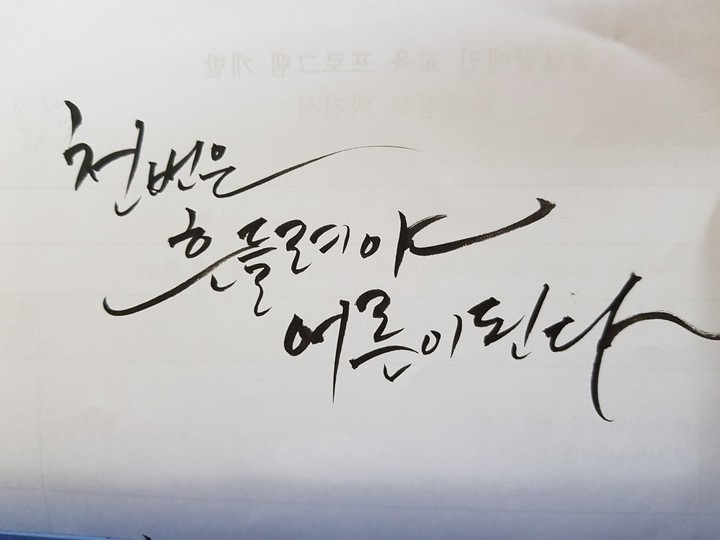 천번은
흔들려야
어른이된다